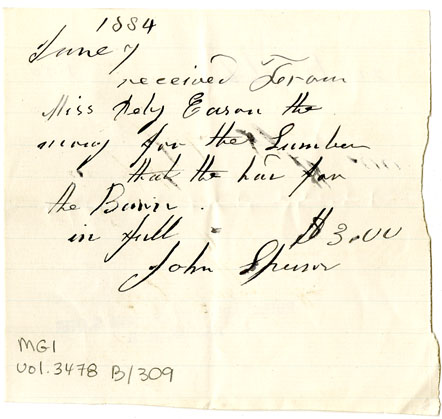 1884
June 7
received From
Miss Eason the
money for the Lumber
that the had for
the Barn.
in full $3.00
John Spusor
MG1
vol. 3478 B/309